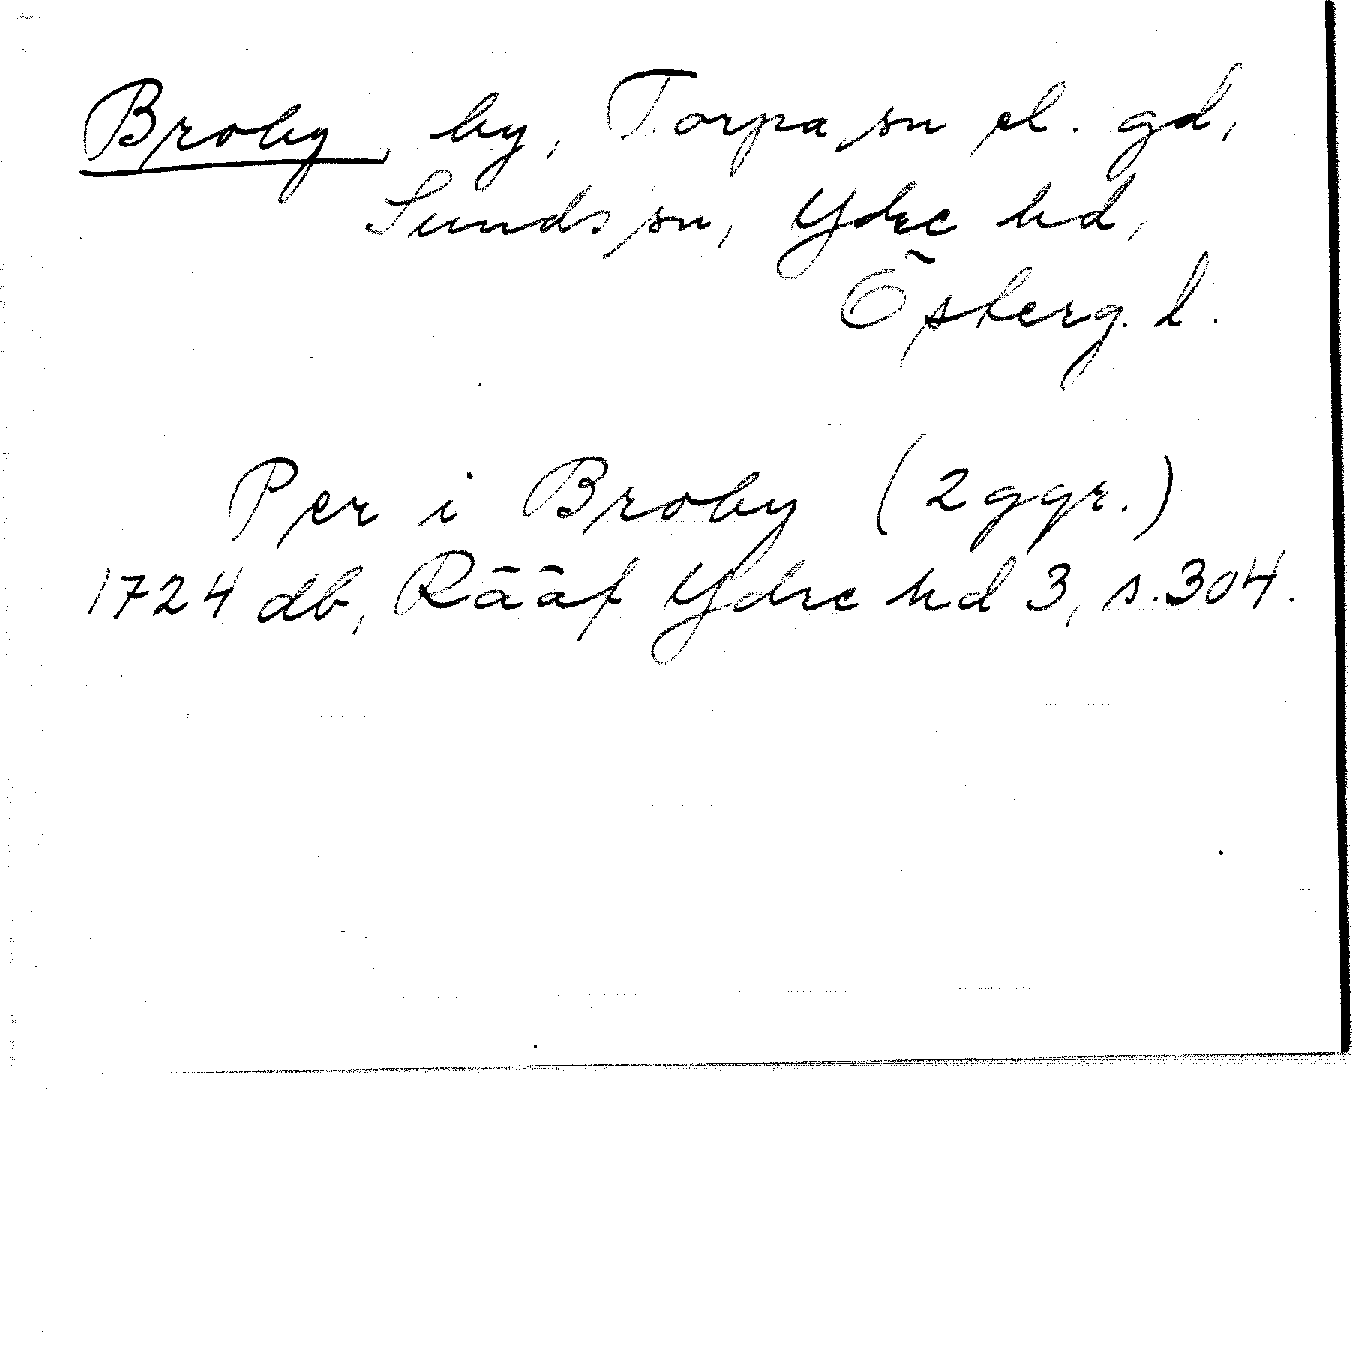 Broby, by, Torpa sn el. gd,
Sunds sn, Ydre hd,
Österg. l.
Per i Broby (2 ggr.)
1724 db, Rääf Ydre hd 3, s. 304.